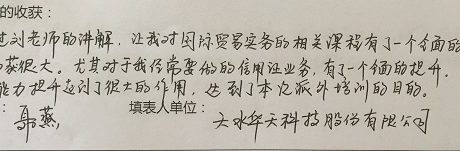 的收获：
过刘老师的讲解，让我对国际贸易实务的相关课程有了一个全面的
获很大。尤其对于我经常要做的信用证业务，有了一个全面的提升，
能力提升起到了很大的作用，达到了本次派外培训的目的。
：郭燕 填表人单位：天水华天科技股份有限公司